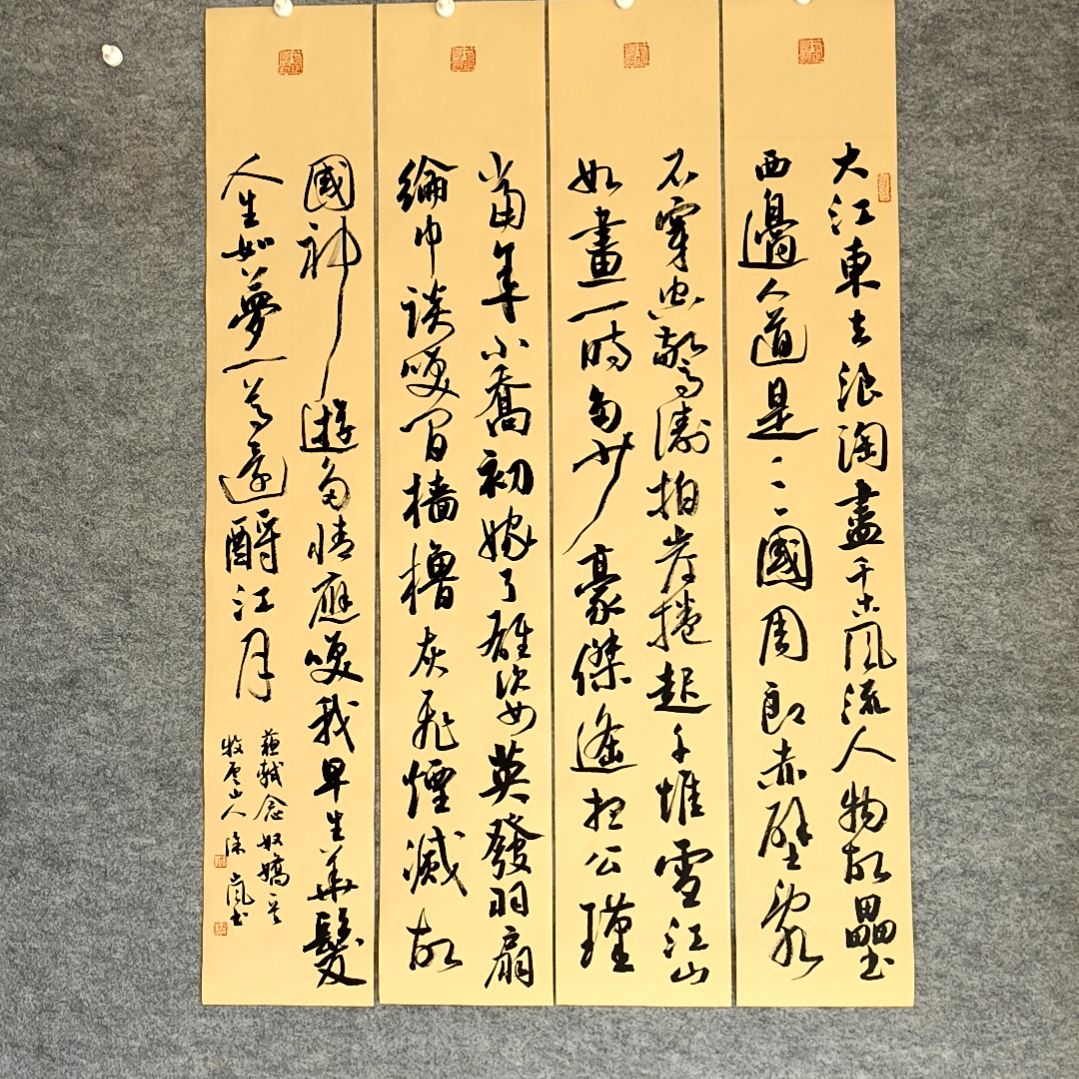 大江東去浪淘盡千古風流人物故壘
西邊人道是三國周郎赤壁亂
石穿空驚濤拍岸捲起千堆雪江山
如畫一時多少豪傑遙想公瑾
當年小喬初嫁了雄姿英發羽扇
綸巾談咲間檣櫓灰飛煙滅故
國神遊多情應咲我早生華髮
人生如夢一尊還酹江月
蘇軾念奴嬌
牧雲山人徐嵐書